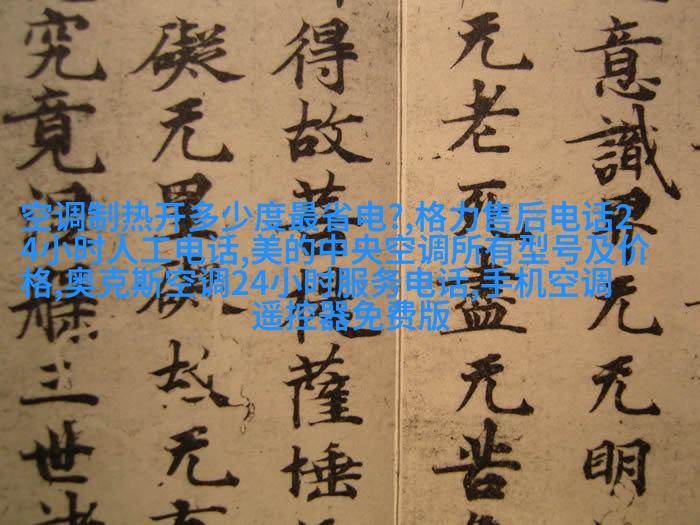 空调制热开多少度最省电?,格力售后电话2
4小时人工电话,美的中央空调所有型号及价
格,奥克斯空调24小时服务电话,手机空调
遥控器免费版
意識界无无明
无老死盡无苦
得故菩提薩埵
礙无罣礙故无有
究竟涅槃三世諸